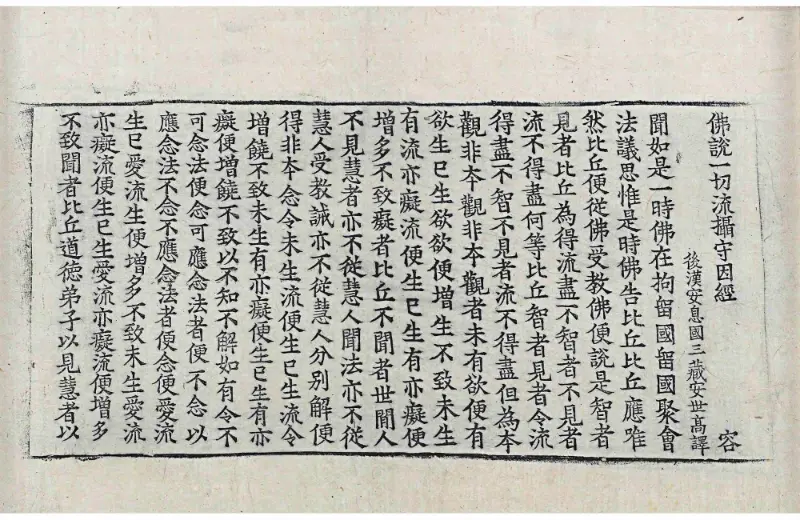 佛說一切流攝守因經　容
後漢安息國三藏安世高譯
聞如是一時佛在拘留國留國聚會
法議思惟是時佛告比丘比丘應唯
然比丘便從佛受教佛便說是智者
見者比丘為得流盡不智者不見者
流不得盡何等比丘智者見者令流
得盡不智不見者流不得盡但為本
觀非本觀非本觀者未有欲便有
欲生已生欲欲便增生不致未生
有流亦癡流便生已生有亦癡便
增多不致癡者比丘不聞者世間人
不見慧者亦不從慧人聞法亦不從
慧人受教誡亦不從慧人分別解便
得非本念令未生流便生已生流令
增饒不致未生有亦癡便生已生有亦
癡便增饒不致以不知不解如有令不
可念法便念可應念法者便不念以
應念法不念不應念法者便念便愛流
生已愛流生便增多不致未生愛流
亦癡流便生已生愛流亦癡流便增多
不致聞者比丘道德弟子以見慧者以